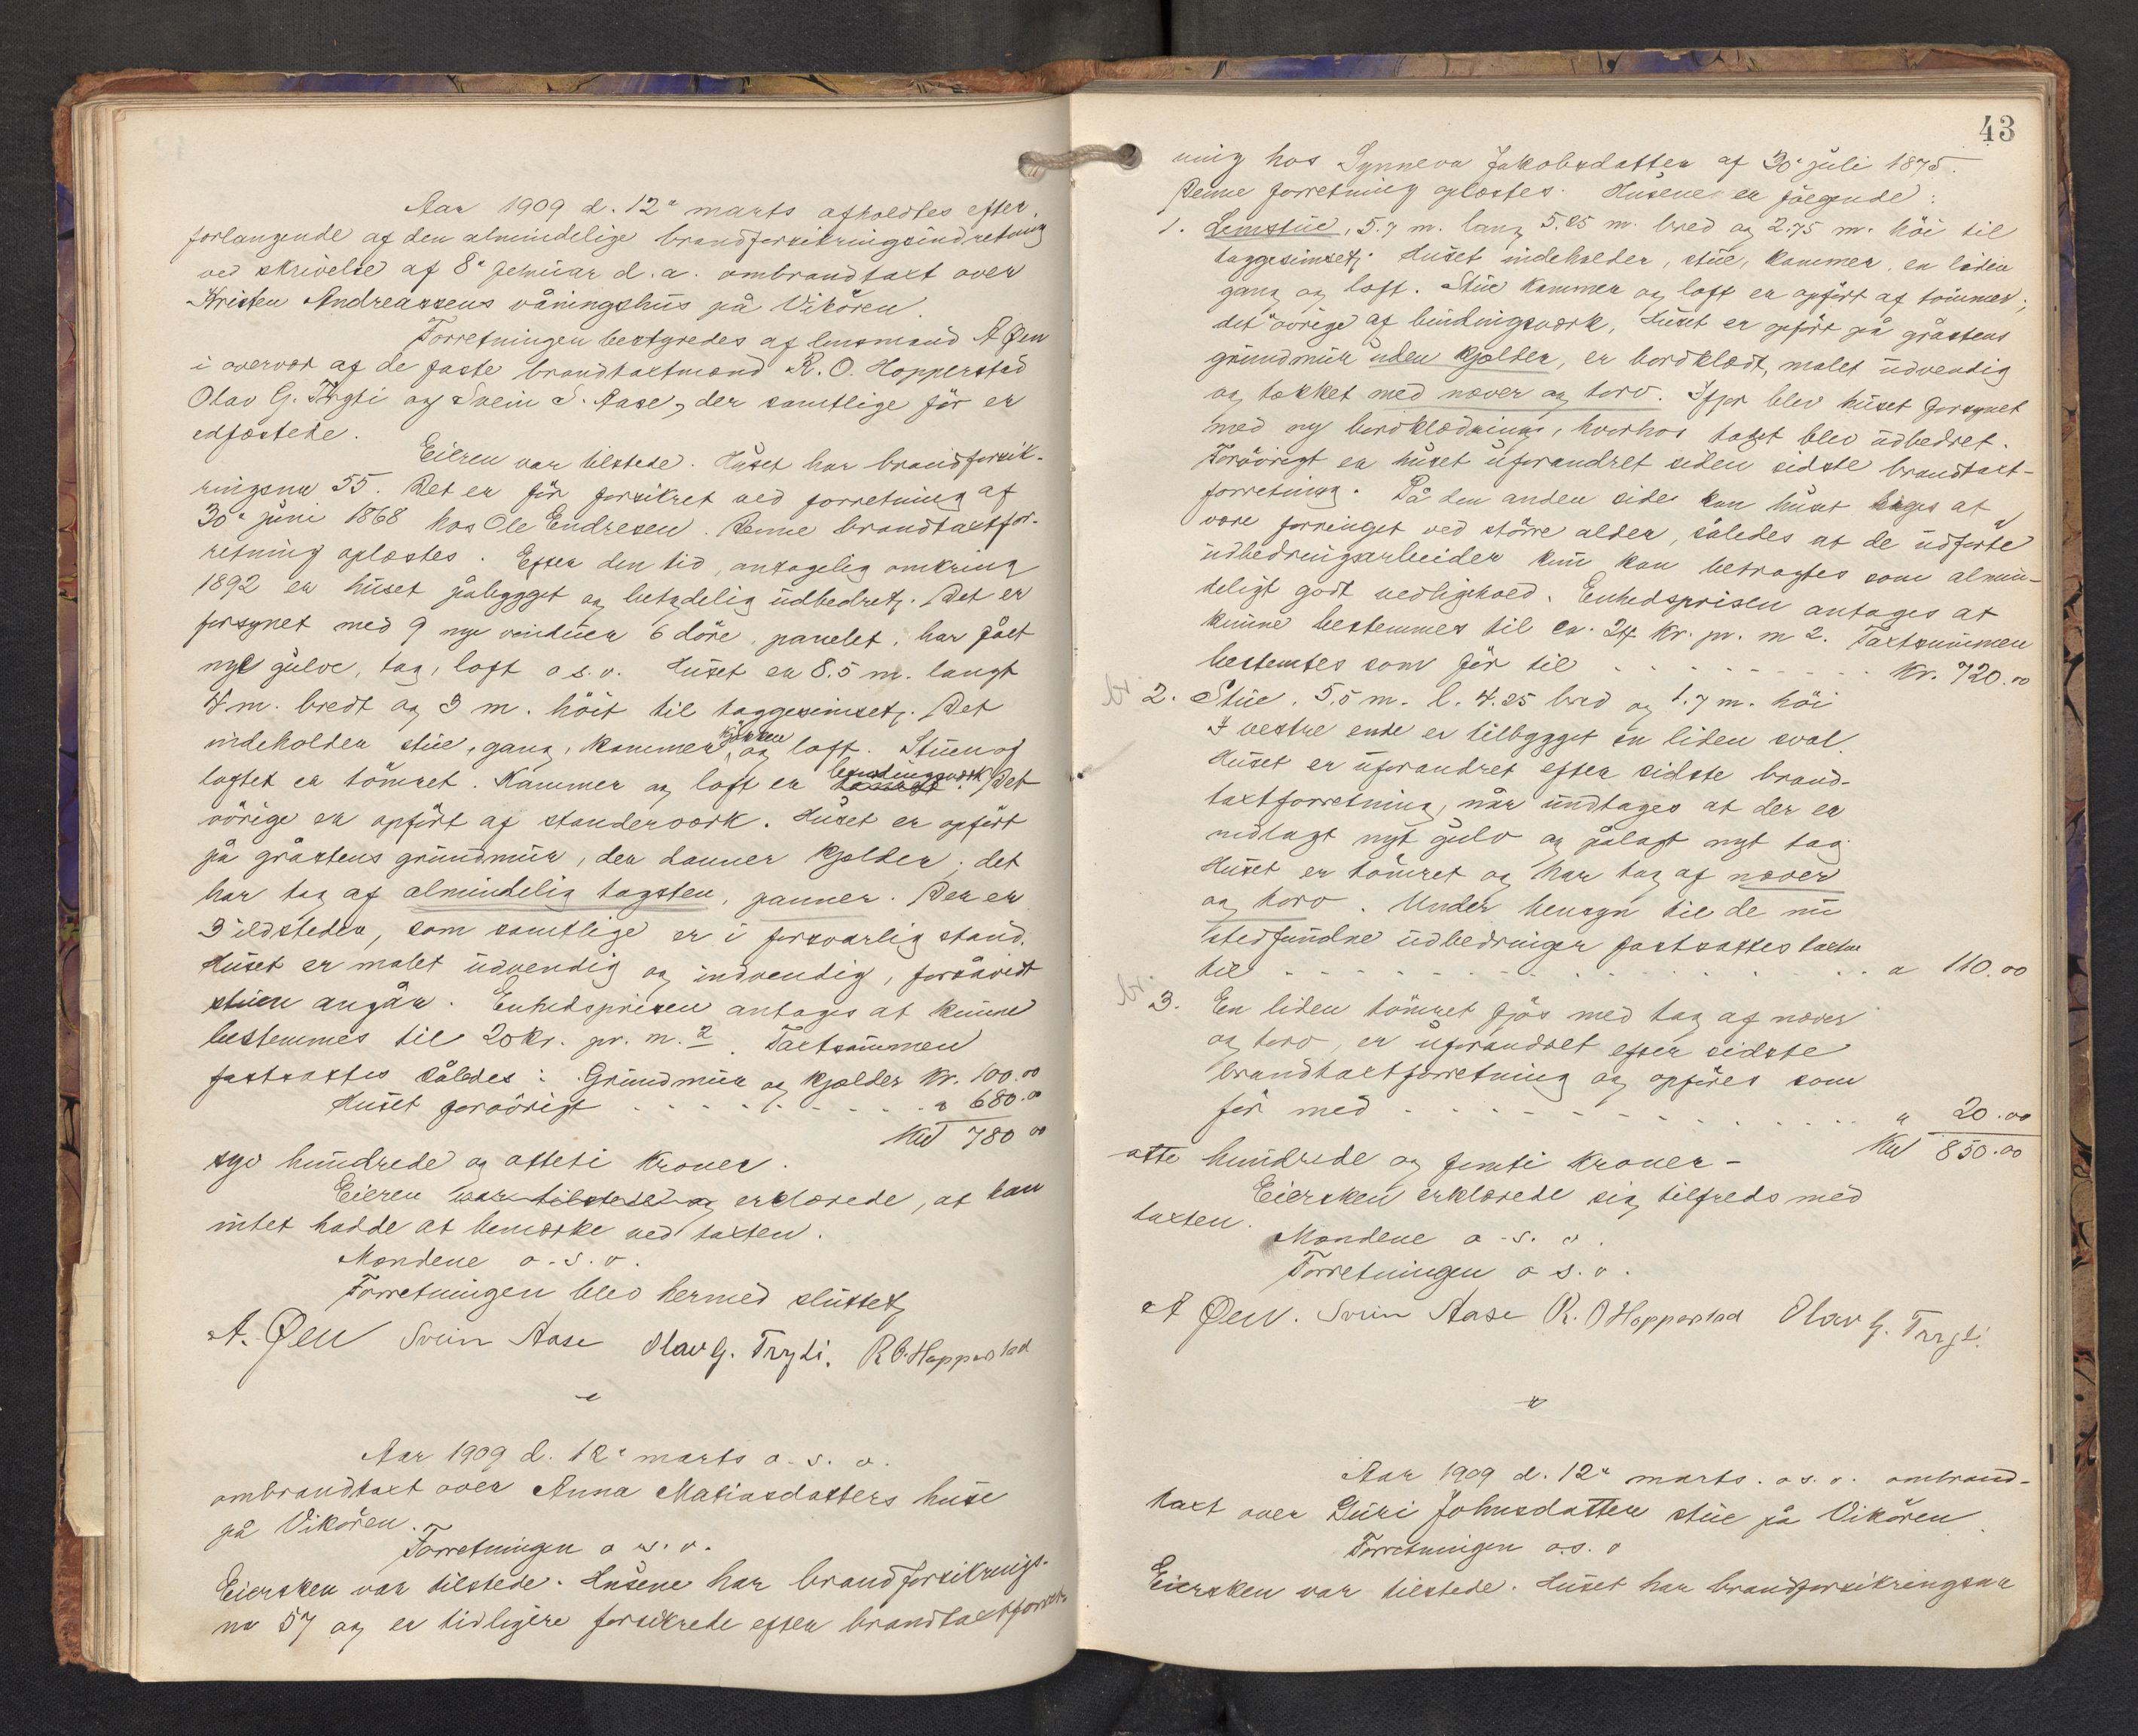 Aar 1909 d. 12te marts afholdtes efter
forlangende af den almindelige brandforsikringsindretning
ved skrivelse af 8de februar d. a. ombrandtaxt over
Kristen Andreassens våningshus på Vikören.
Forretningen bestyredes af lensmand A Øen
i overvær af de faste brandtaxtmænd R. O. Hopperstad
Olav G. Trygti og Svein S. Aase, der samtlige för er
edfæstede.
Eieren var tilstede. Huset har brandforsik-
ringsnr 55. Det er för forsikret ved forretning af
30te juni 1868 hos Ole Endresen. Denne brandtaxtfor-
retning oplæstes. Efter den tid, antagelig omkring
1892 er huset påbygget og betydelig udbedret. Det er
forsynet med 9 nye vinduer 6 döre, panelet, har fået
nyt gulve, tag, loft o. s. v. Huset er 8.5 m. langt
4 m. bredt og 3 m. höit til taggesimset. Det
indeholder stue, gang, kammer, kjökken og loft. Stuen og
loftet er tömret. Kammer og loft er bindingsværk. Det
övrige er opfört af standerværk. Huset er opfört
på gråstens grundmur, der danner kjælder; det
har tag af almindelig tagsten, panner. Der er
3 ildsteder, som samtlige er i forsvarlig stand.
Huset er malet udvendig og indvendig, forsåvidt
stuen angår. Enhedsprisen antages at kunne
bestemmes til 20 kr. pr. m. 2. Taxtsummen
fastsattes således: Grundmur og kjælder Kr. 100.00
Huset forövrigt . . . . . . . . . " 680.00
Kr 780 00
syv hundrede og otteti Kroner.
Eieren var tilstede og erklærede, at han
intet hadde at bemærke ved taxten.
Mændene o. s. v.
Forretningen blev hermed sluttet
A. Øen Svein Aase Olav G. Trygti. R O. Hopperstad
Aar 1909 d. 12te marts o. s. v.
ombrandtaxt over Anna Matiasdatters huse
på Vikören.
Forretningen o. s. v.
Eiersken var tilstede. Husene har brandforsikrings-
nr 57 og er tidligere forsikrede efter brandtaxtforret-
43
ning hos Synneva Jakobsdatter af 30te juli 1875.
Denne forretning oplæstes. Husene er fölgende:
1. Lemstue, 5.7 m. lang 5.25 m. bred og 2.75 m. höi til
taggesimset. Huset indeholder, stue, kammer, en liden
gang og loft. Stue kammer og loft er opfört af tömmer;
det övrige af bindingsværk, Huset er opfört på gråstens
grundmur uden kjælder, er bordklædt, malet udvendig
og tækket med næver og torv. Ifjor blev huset forsynet
med ny bordklædning, hvorhos taget blev udbedret.
Forövrigt er huset uforandret siden sidste brandtaxt-
forretning. På den anden side kan huset siges at
være forringet ved större alder, således at de udförte
udbedringsarbeider kun kan betragtes som almin-
deligt godt vedligehold. Enhedsprisen antages at
kunne bestemmes til ca. 24 kr. pr. m 2. Taxtsummen
bestemtes som för til . . . . . . . . . Kr. 720.00
br. 2. Stue. 5.5 m. l. 4.25 bred og 1.7 m. höi
I vestre ende er tilbygget en liden sval.
Huset er uforandret efter sidste brand-
taxtforretning, når undtages at der er
nedlagt nyt gulv og pålagt nyt tag.
Huset er tömret og har tag af næver
og torv. Under hensyn til de nu
stedfundne udbedringer fastsattes taxten
til . . . . . . . . . . . . . . . . " 110.00
br. 3. En liden tömret fjös med tag af næver
og torv, er uforandret efter sidste
brandtaxtforretning og opföres som
för med . . . . . . . . . . . . . " 20.00
Kr 850.00
otte hundrede og femti kroner -
Eiersken erklærede sig tilfreds med
taxten.
Mændene o. s. v.
Forretningen o s. v.
A Øen. Svein Aase R. O Hopperstad Olav G. Trygti.
Aar 1909 d. 12te marts. o s. v. ombrand-
taxt over Guri Johnsdatters stue på Vikören.
Forretningen o. s. v
Eiersken var tilstede. Huset har brandforsikringsnr